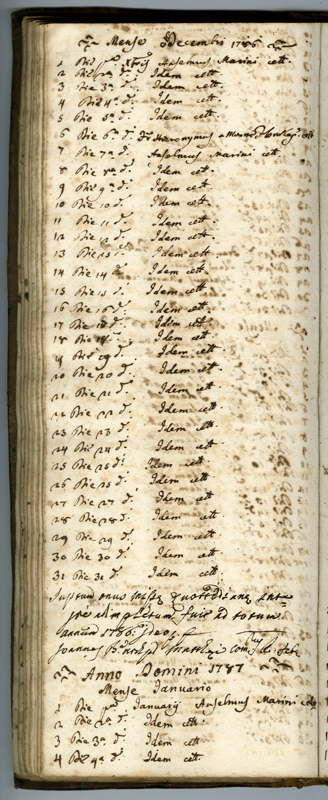 Mense Decembri 1786
1 Die 1ma Xbris Anselmus Marini cett.
2 Die 2da d. Idem cett.
3 Die 3a d. Idem cett.
4 Die 4a d. Idem cett.
5 Die 5a d. Idem cett.
6 Die 6a d. Fr Hieronymus a cett
7 Die 7a d. Anselmus Marini cett.
8 Die 8a d. Idem cett.
9 Die 9a d. Idem cett.
10 Die 10 d. Idem cett.
11 Die 11 d. Idem cett.
12 Die 12 d. Idem cett.
13 Die 13 d. Idem cett.
14 Die 14 d. Idem cett.
15 Die 15 d. Idem cett.
16 Die 16 d. Idem cett.
17 Die 17 d. Idem cett.
18 Die 18 d. Idem cett.
19 Die 19 d. Idem cett.
20 Die 20 d. Idem cett.
21 Die 21 d. Idem cett.
22 Die 22 d. Idem cett.
23 Die 23 d. Idem cett.
24 Die 24 d. Idem cett.
25 Die 25 d. Idem cett.
26 Die 25 d. Idem cett.
27 Die 27 d. Idem cett.
28 Die 28 d. Idem cett.
29 Die 29 d. Idem cett.
30 Die 30 d. Idem cett.
31 Die 31 d. Idem cett.
onus missæ quottidianæ
adimpletum fuit ad totum
annum 1786.
Joannes
Anno Domini 1787
Mense Januario
1 Die 1ma Januarij Anselmus Marini cett.
2 Die 2a d. Idem cett.
3 Die 3a d. Idem cett.
4 Die 4a d. Idem cett.